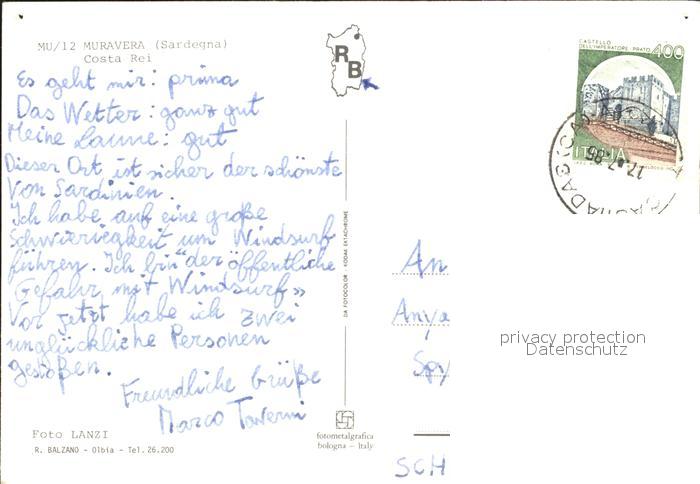 MU/12 MURAVERA (Sardegna)
Costa Rei
R
B
CASTELLO
DELL'IMPERATORE · PRATO
400
ITALIA
17.7.85
Es geht mir: prima
Das Wetter: ganz gut
Meine Laune: gut
Dieser Ort ist sicher der schönste
Von Sardinien.
Ich habe auf eine große
Schwieriegkeit um Windsurf
führen. Ich bin "der öffentliche
Gefahr mit Windsurf»
Vor jetzt habe ich zwei
unglückliche Personen
gestoßen.
Freundliche Grüße
Marco Taverni
DA FOTOCOLOR KODAK EKTACHROME
An
Anya
Spy
SCH
privacy protection
Datenschutz
Foto LANZI
R. BALZANO - Olbia - Tel. 26.200
fotometalgrafica
bologna - Italy